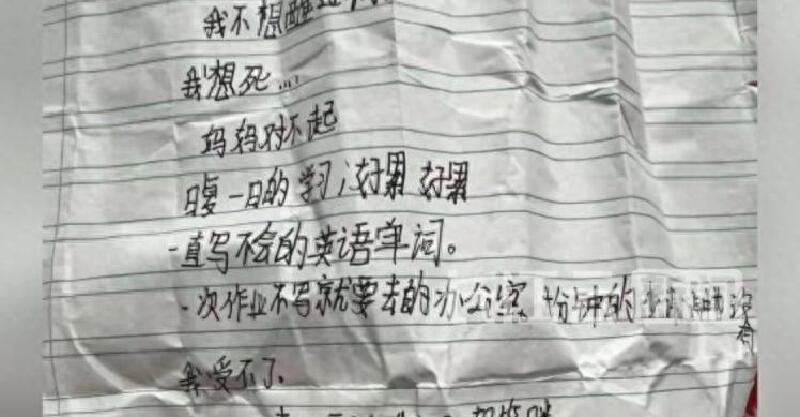 我不想醒
我想死...
妈妈对不起
日复一日的学习,好累 好累
一直写不会的英语单词。
一次作业不写就要去的办公室 十分钟的
我受不了.